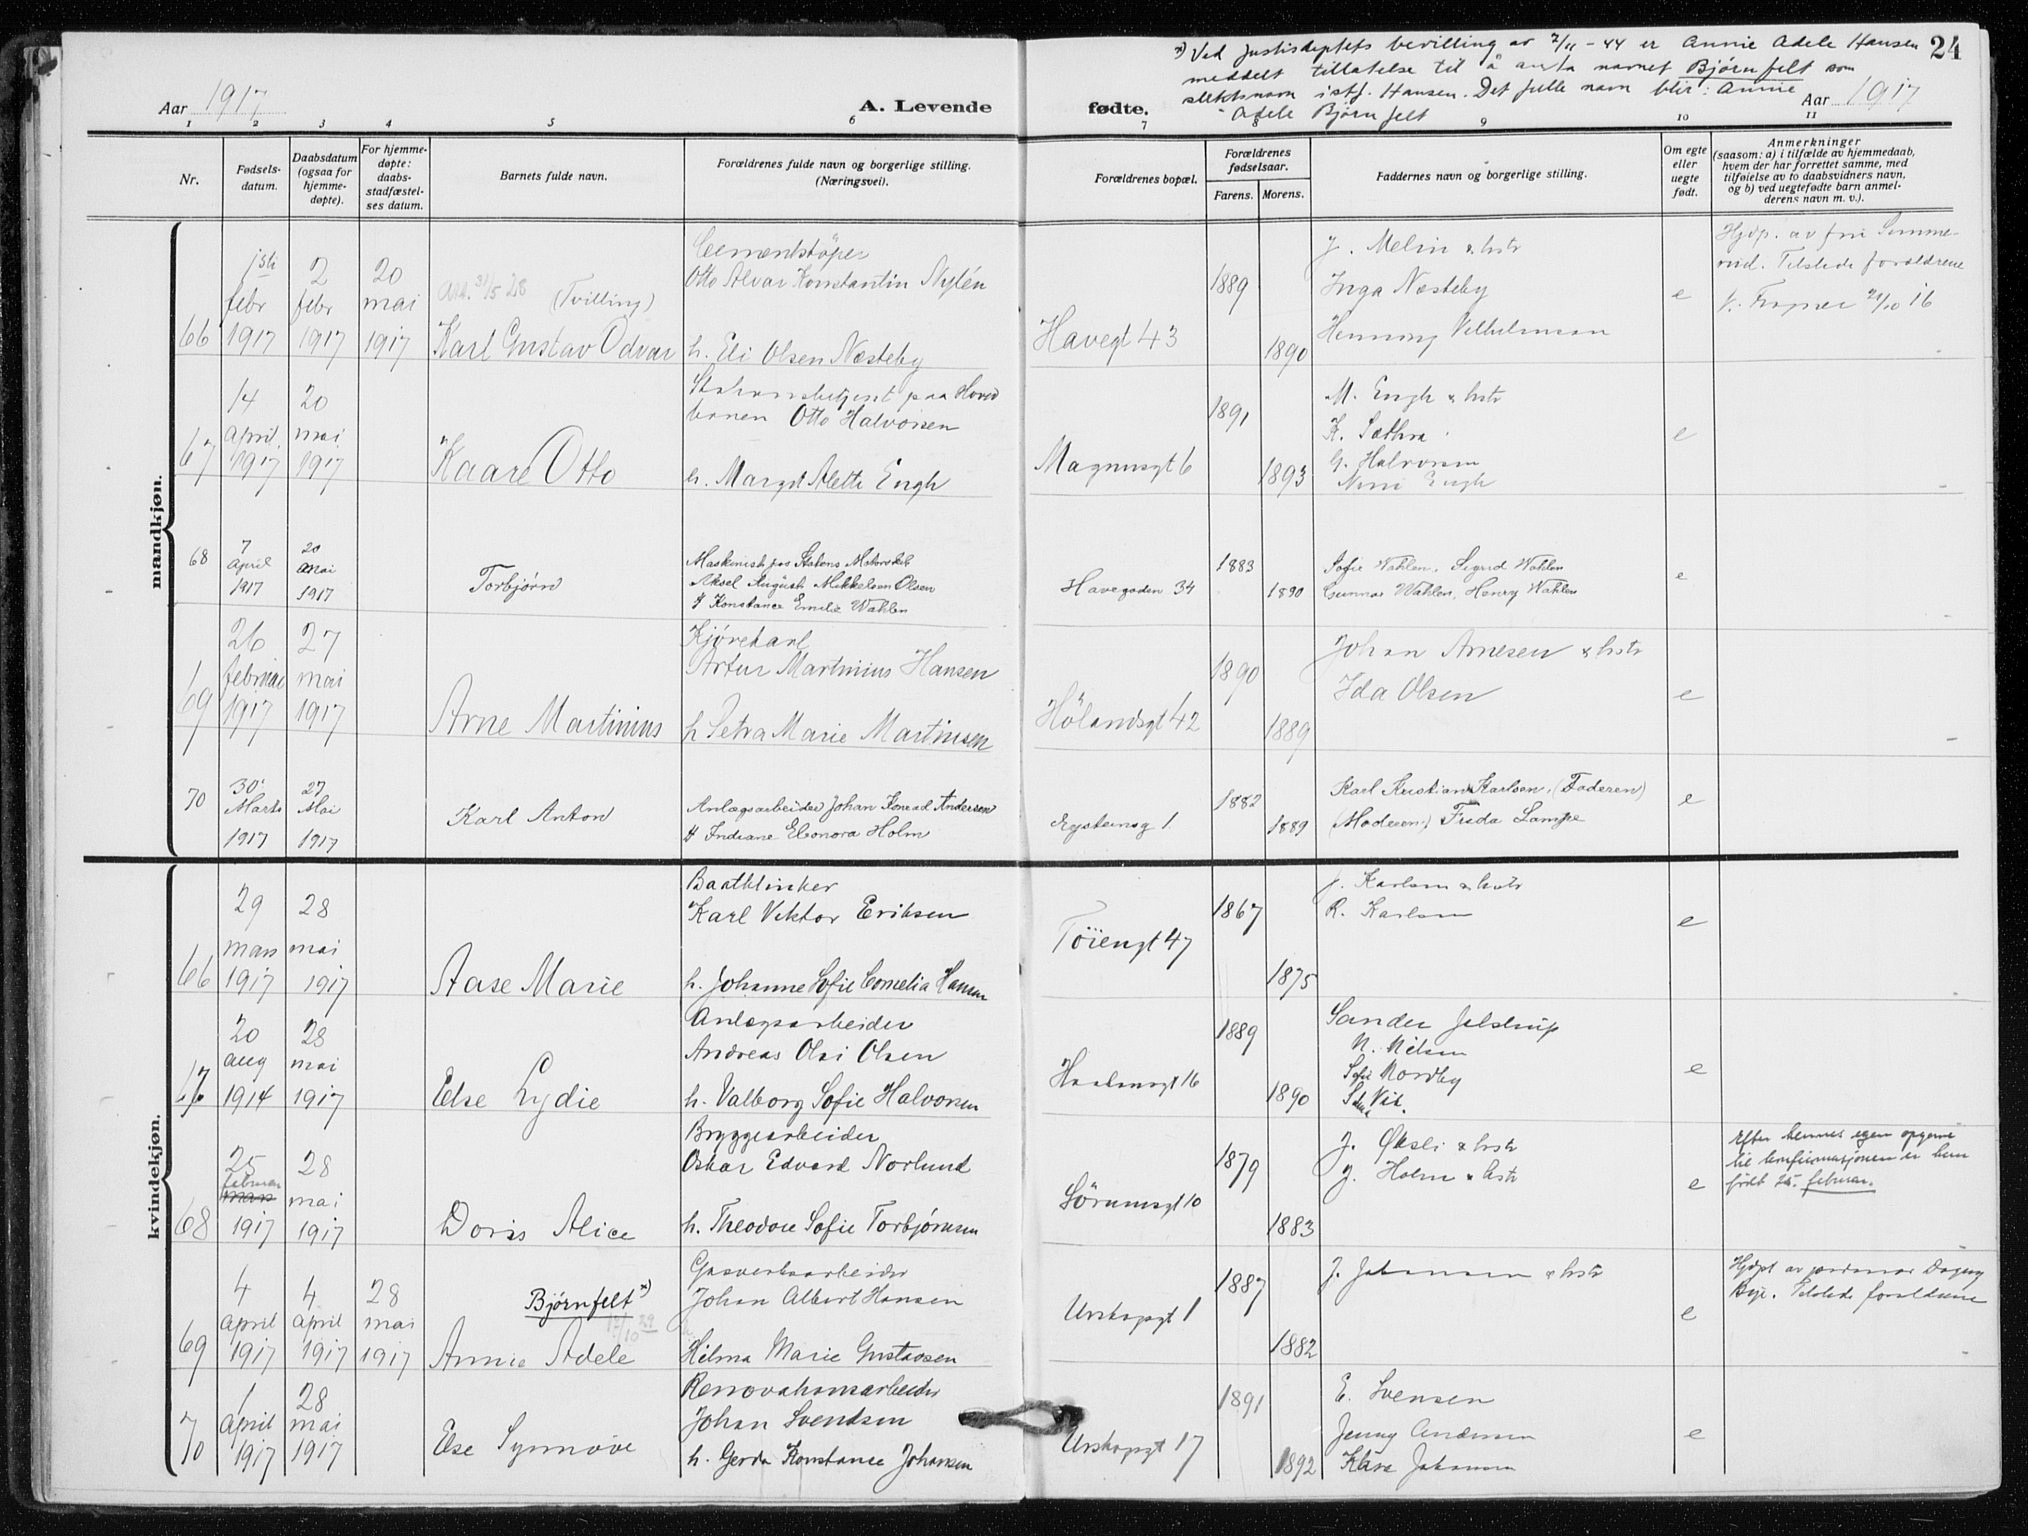 *) Ved Justisdeptets bevilling av 7/11 - 44 er Annie Adele Hansen
24
meddelt tillatelse til å anta navnet Bjørnfelt som
slektsnavn istf. Hansen. Det fulle navn blir: Annie
Adele Bjørnfelt
Aar 1917
A. Levende
fødte.
Aar 1917
1 2 3 4 5 6 7 8 9 10 11
Nr.
Fødsels-
datum.
Daabsdatum
(ogsaa for
hjemme-
døpte).
For hjemme-
døpte:
daabs-
stadfæstel-
ses datum.
Barnets fulde navn.
Forældrenes fulde navn og borgerlige stilling.
(Næringsvei).
Forældrenes bopæl.
Forældrenes
fødselsaar.
Farens. Morens.
Faddernes navn og borgerlige stilling.
Om egte
eller
uegte
født.
Anmerkninger
(saasom: a) i tilfælde av hjemmedaab,
hvem der har forrettet samme, med
tilføielse av to daabsvidners navn,
og b) ved uegtefødte barn anmel-
derens navn m. v.).
mandkjøn.
66
1ste
febr
1917
2
febr
1917
20
mai
1917
31/5 28 (Tvilling)
Karl Gustav Odvar
Cementstøper
Otto Alvar Konstantin Nylén
h. Eli Olsen Næsteby
Havegt 43
1889
1890
J. Melin & hstr
Inga Næsteby
Henning Vilhelmson
e
Hjdp. av fru Simme-
rud. Tilstede forældrene
V. Frogner 21/10 16
67
14
april
1917
20
mai
1917
Kaare Otto
Stationsbetjent paa Hoved
banen Otto Halvorsen
h. Margit Alette Engh
Magnusgt 6
1891
1893
M. Engh & hstr
K. Sæthra
G. Halvorsen
Nini Engh
e
68
7
april
1917
20
mai
1917
Torbjørn
Maskinist paa Statens Motorskib
Aksel August Mikkelsen Olsen
H Konstance Emilie Wahlen
Havegaden 34
1883
1890
Sofie Wahlen, Sigrid Wahlen
Gunnar Wahlen, Henry Wahlen
e
69
26
februar
1917
27
mai
1917
Arne Martinius
Kjørekarl
Artur Martinius Hansen
h Petra Marie Martinsen
Hølandsgt 42
1890
1889
Johan Arnesen & hstr
Ida Olsen
e
70
30
Marts
1917
27
Mai
1917
Karl Anton
Anlægsarbeider Johan Konrad Andersen
H Indiane Eleonora Holm
Eysteinsg 1.
1882
1889
Karl Kristian Karlsen. (Faderen)
(Moderen) Frida Lampe
e
kvindekjøn.
66
29
mars
1917
28
mai
1917
Aase Marie
Baatklinker
Karl Viktor Eriksen
h. Johanne Sofie Cornelia Hansen
Töiengt 47
1867
1875
J. Karlsen & hstr
R. Karlsen
e
67
20
aug
1914
28
mai
1917
Else Lydie
Anlægsarbeider
Andreas Olai Olsen
h. Valborg Sofie Halvorsen
1889
1890
Sander Jelstrup
N. Nilsen
Sofie Nordby
e
68
25
februar
mars
1917
28
mai
1917
Doris Alice
Bryggearbeider
Oskar Edvard Norlund
h. Theodore Sofie Torbjørnsen
Sörumsgt 10
1879
1883
J. Øksli & hstr
J. Holm & hstr
e
Efter hennes egen opgave
til konfirmasjonen er hun
født 25. februar.
69
4
april
1917
4
april
1917
28
mai
1917
Bjørnfelt *)
12/10 39
Annie Adele
Gasverksarbeider
Johan Albert Hansen
Hilma Marie Gustavsen
Urskogsgt 1
1887
1882
J. Johansen & hstr
e
Hjdpt av jordmor Dagny
Boje. Tilstede forældrene
70
1
april
1917
28
mai
1917
Else Synnøve
Renovationsarbeider
Johan Svendsen
h. Gerda Konstance Johansen
Urskogsgt 17
1891
1892
E. Svensen
Jenny Andersen
Klara Johansen
e